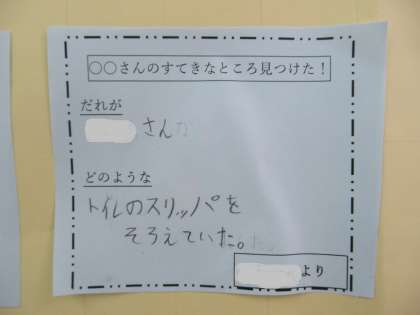 ○○さんのすてきなところ見つけた!
だれが
さんが
どのような
トイレのスリッパを
そろえていた。
より